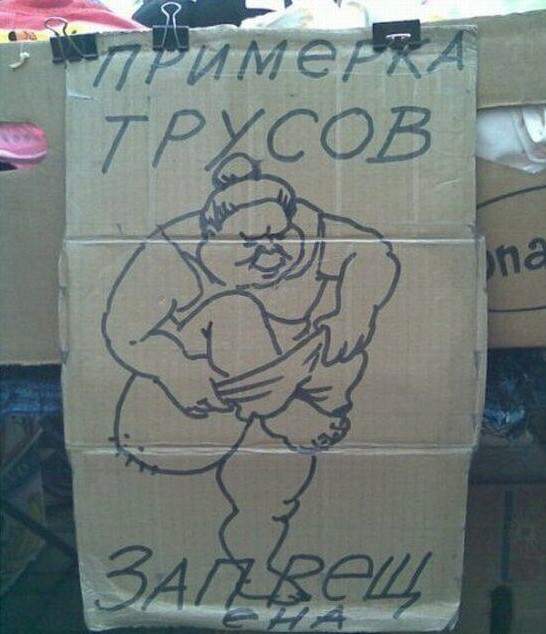 ПРИМеРКА
ТРУСОВ
ЗАПРеЩ
еНА
na